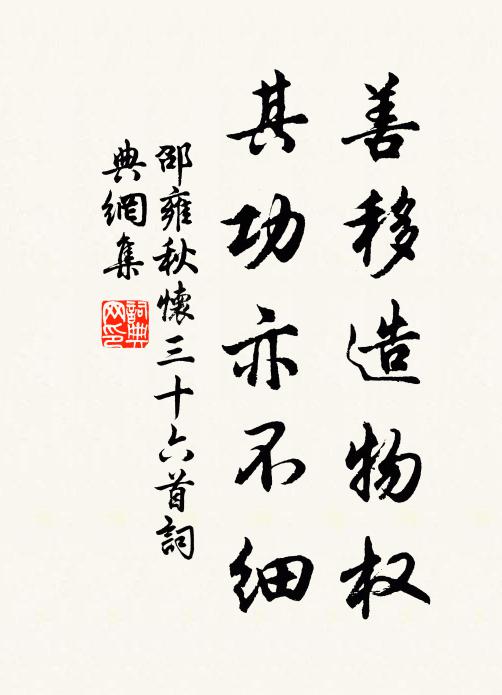 善移造物权
其功亦不细
邵雍秋懷三十六首詞
典網集
詞典网印